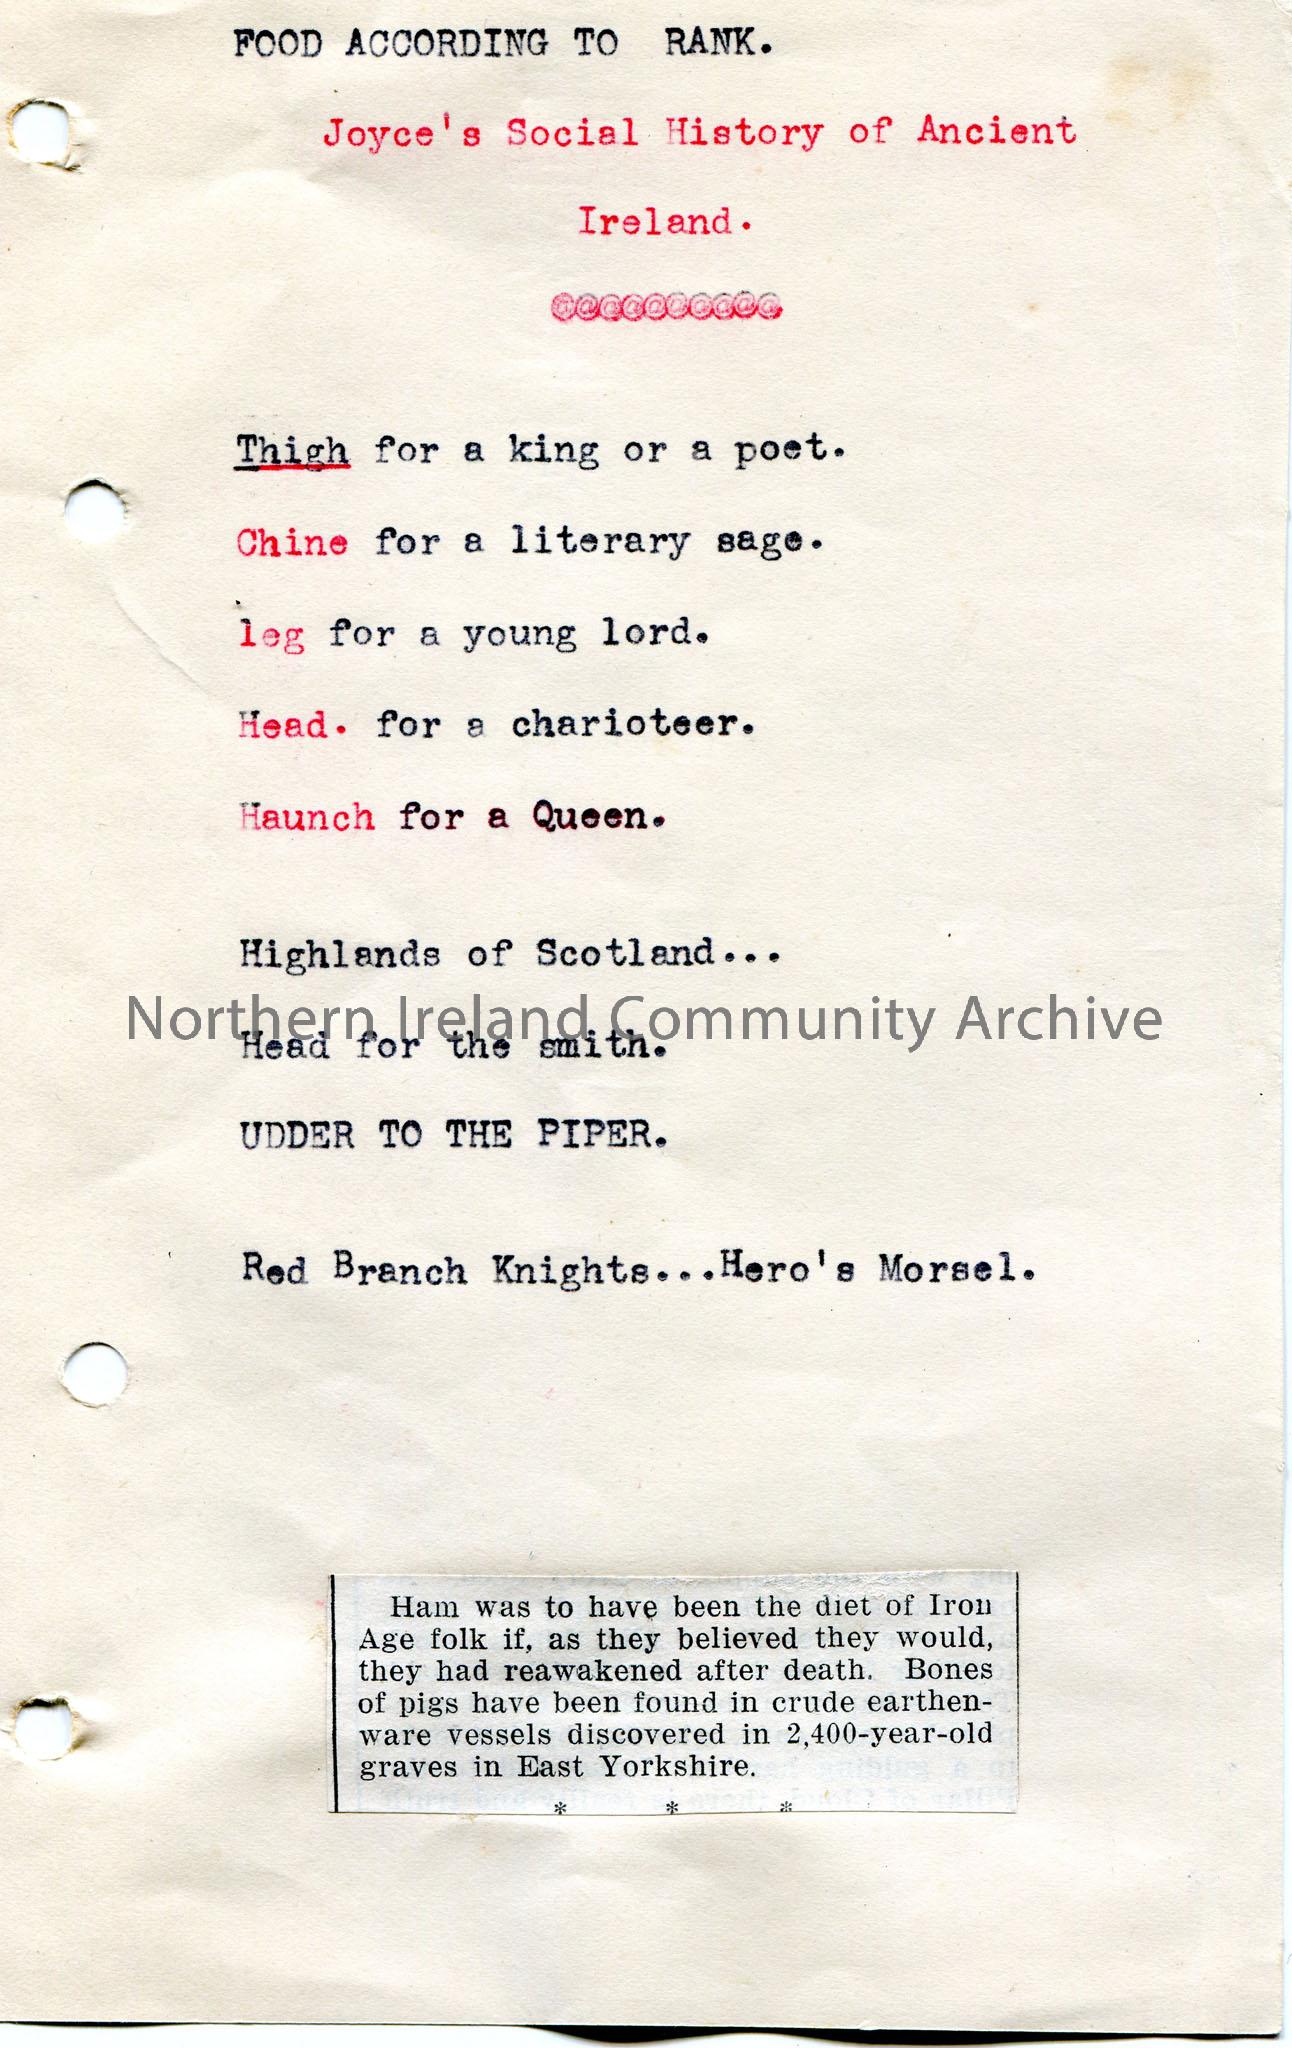 FOOD ACCORDING TO RANK.
Joyce's Social History of Ancient
Ireland.
@@@@@@@@@@
Thigh for a king or a poet.
Chine for a literary sage.
leg for a young lord.
Head. for a charioteer.
Haunch for a Queen.
Highlands of Scotland...
Northern Ireland Community Archive
Head for the smith.
UDDER TO THE PIPER.
Red Branch Knights...Hero's Morsel.
Ham was to have been the diet of Iron
Age folk if, as they believed they would,
they had reawakened after death. Bones
of pigs have been found in crude earthen-
ware vessels discovered in 2,400-year-old
graves in East Yorkshire.
* * *